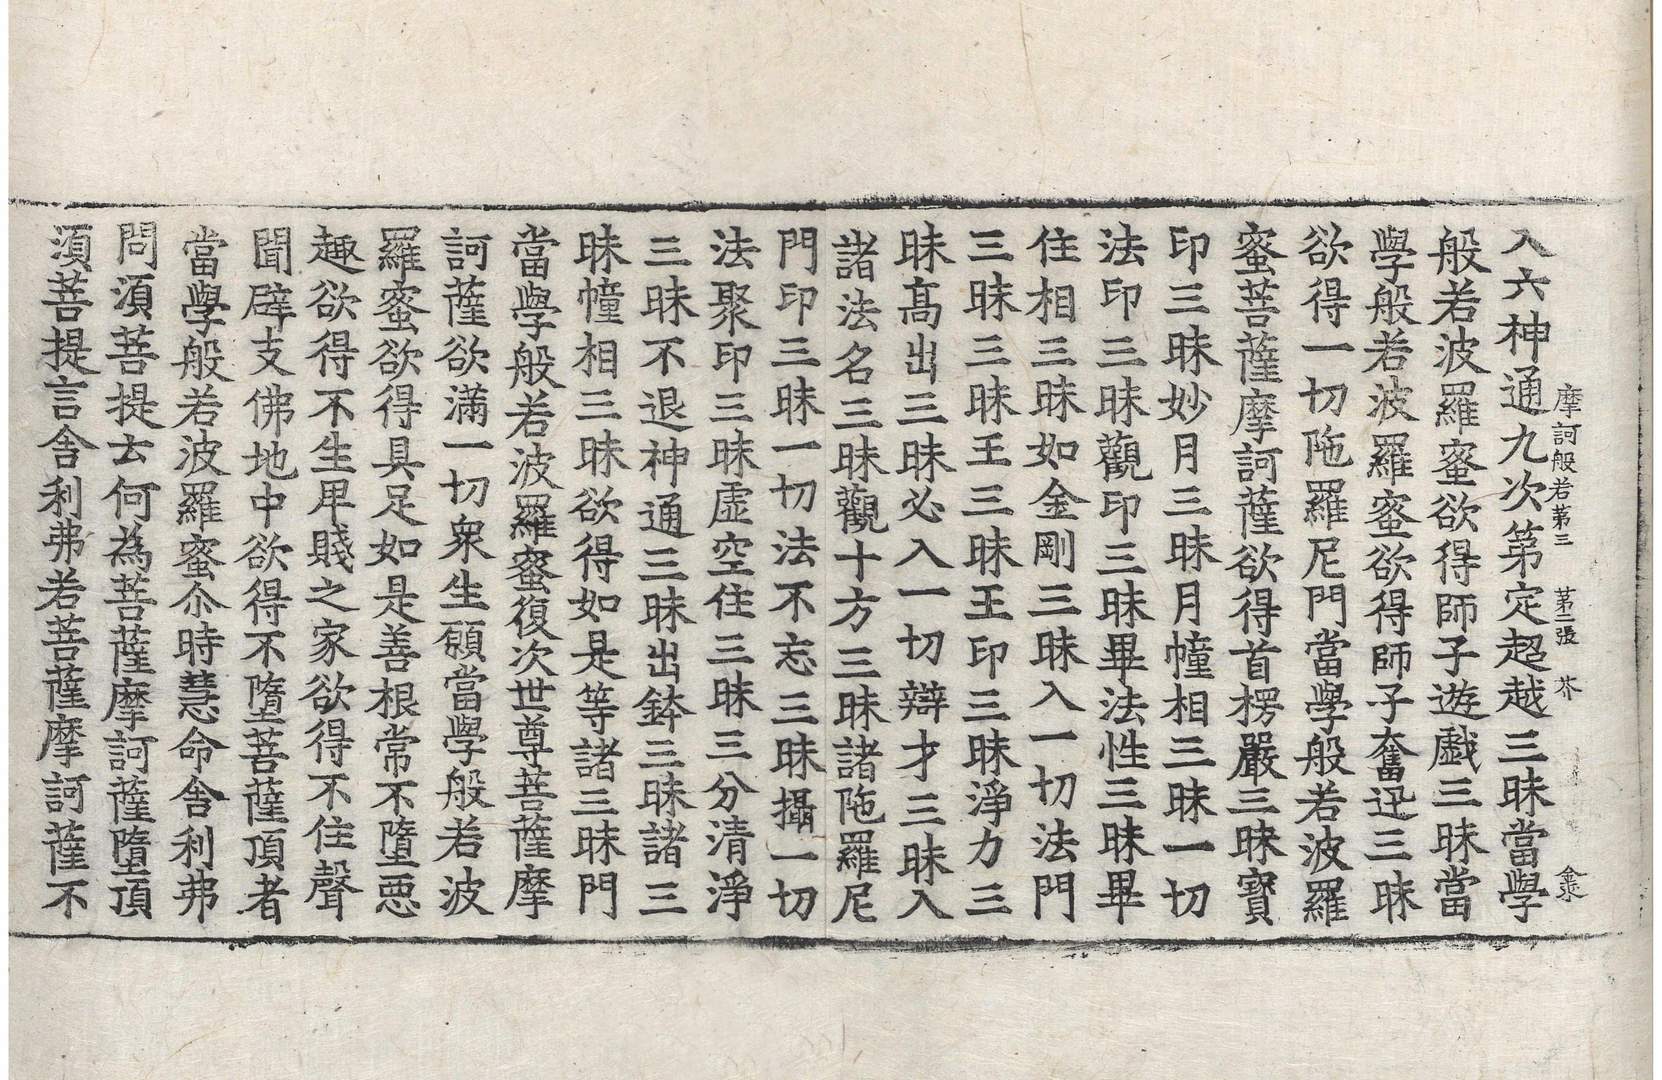 摩訶般若第三 第二張 芥
入六神通九次第定超越三昧當學
般若波羅蜜欲得師子遊戲三昧當
學般若波羅蜜欲得師子奮迅三昧
欲得一切陁羅尼門當學般若波羅
蜜菩薩摩訶薩欲得首楞嚴三昧寶
印三昧妙月三昧月幢相三昧一切
法印三昧觀印三昧畢法性三昧畢
住相三昧如金剛三昧入一切法門
三昧三昧王三昧王印三昧淨力三
昧高出三昧必入一切辯才三昧入
諸法名三昧觀十方三昧諸陁羅尼
門印三昧一切法不忘三昧攝一切
法聚印三昧虛空住三昧三分清淨
三昧不退神通三昧出鉢三昧諸三
昧幢相三昧欲得如是等諸三昧門
當學般若波羅蜜復次世尊菩薩摩
訶薩欲滿一切衆生願當學般若波
羅蜜欲得具足如是善根常不墮惡
趣欲得不生卑賤之家欲得不住聲
聞辟支佛地中欲得不墮菩薩頂者
當學般若波羅蜜尒時慧命舍利弗
問須菩提云何為菩薩摩訶薩墮頂
須菩提言舍利弗若菩薩摩訶薩不